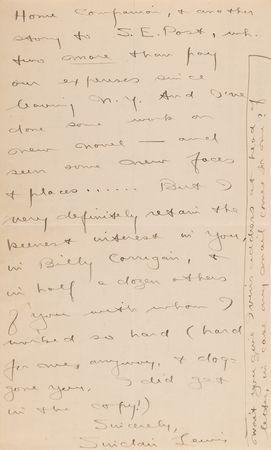 Home Companion, & another
story to S.E. Post, wh.
two more than pay
our expenses since
leaving N.Y. And I've
done some work on
new novel — and
seen some new faces
& places...... But I
very definitely retain the
keenest interest in you,
in Billy Corrigan, &
in half a dozen others
of you with whom I
worked so hard (hard
for me, anyway, & dog-
gone you, I did get
in the copy!)
Sincerely,
Sinclair Lewis
Won't you give I'ving address at head of
letter, in case any mail comes for me?